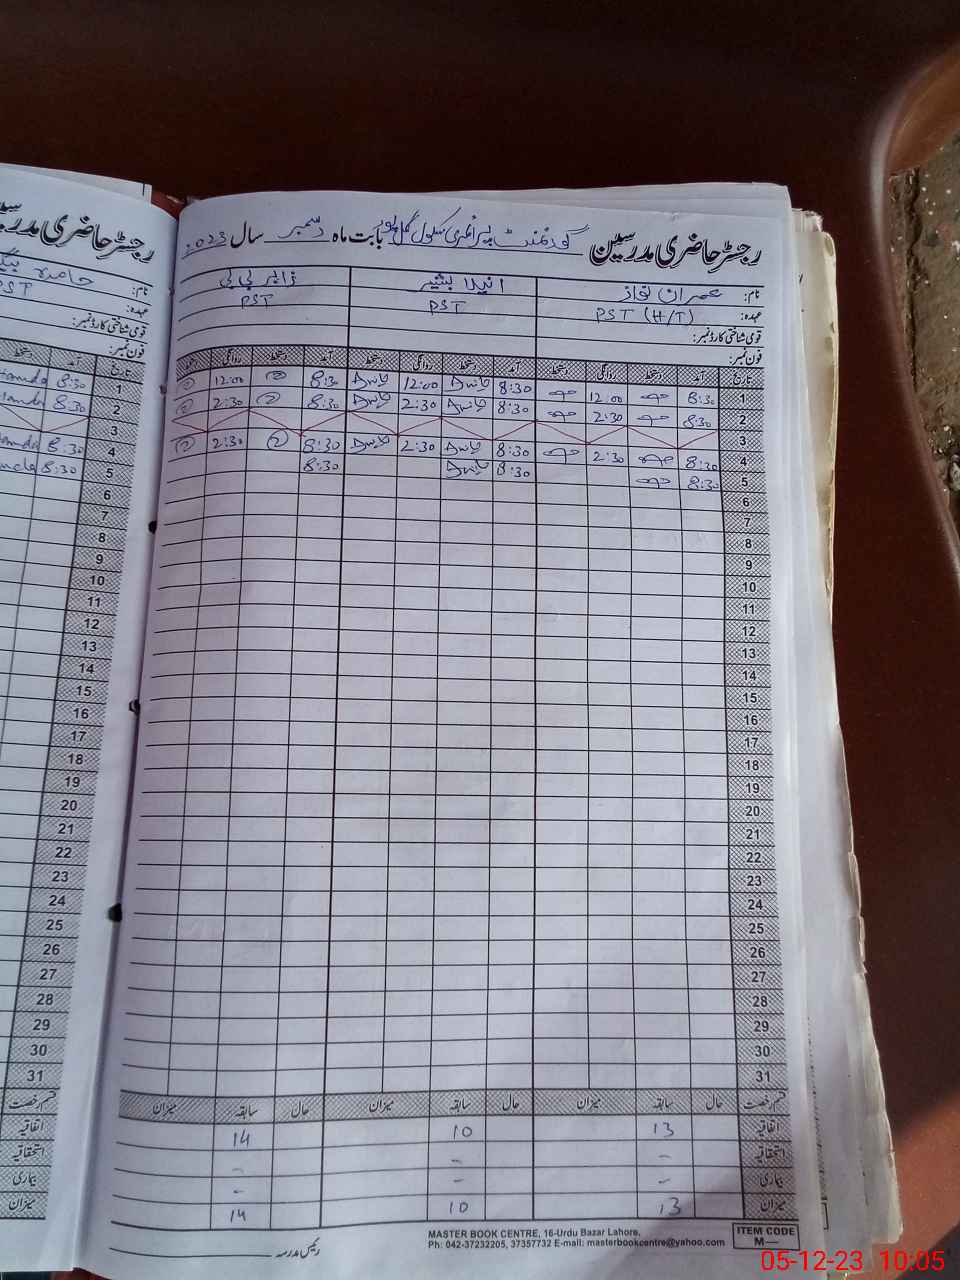 رجسٹر حاضری مدرسین گورنمنٹ پرائمری سکول گل پور بابت ماہ دسمبر سال 2023
نام: عمران نواز انیلا بشیر زاہدہ بی بی
عہدہ: PST (H/T) PST PST
قومی شناختی کارڈ نمبر:
فون نمبر:
تاریخ آمد دستخط روانگی دستخط آمد دستخط روانگی دستخط آمد دستخط روانگی
1 8:30 12:00 8:30 12:00 8:30 12:00
2 8:30 2:30 8:30 2:30 8:30 2:30
3
4 8:30 2:30 8:30 2:30 8:30 2:30
5 8:30 8:30 8:30
6
7
8
9
10
11
12
13
14
15
16
17
18
19
20
21
22
23
24
25
26
27
28
29
30
31
قسم رخصت حال سابقہ میزان حال سابقہ میزان حال سابقہ میزان
اتفاقیہ 13 10 14
استحقاقیہ - - -
بیماری - - -
میزان 13 10 14
رئیس مدرسہ
MASTER BOOK CENTRE, 16-Urdu Bazar Lahore.
Ph: 042-37232205, 37357732 E-mail: masterbookcentre@yahoo.com
ITEM CODE
M—
رجسٹر حاضری مدرسین
نام:
عہدہ: PST
قومی شناختی کارڈ نمبر:
فون نمبر:
تاریخ آمد دستخط
1 8:30
2 8:30
3
4 8:30
5 8:30
6
7
8
9
10
11
12
13
14
15
16
17
18
19
20
21
22
23
24
25
26
27
28
29
30
31
قسم رخصت
اتفاقیہ
استحقاقیہ
بیماری
میزان
05-12-23 10:05